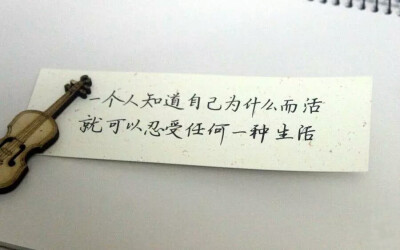 一个人知道自己为什么而活
就可以忍受任何一种生活